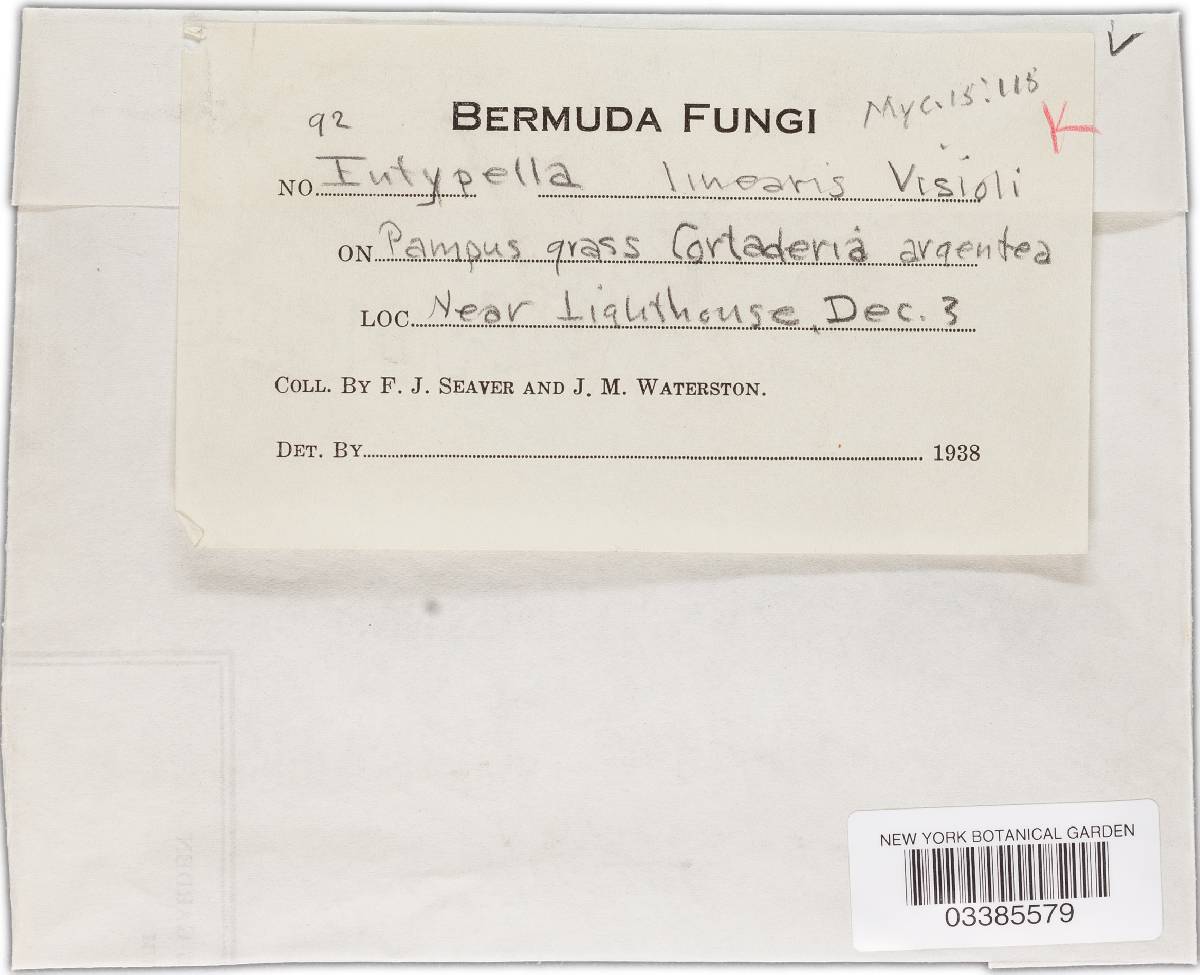 92 BERMUDA FUNGI Myc. 15:115
NO. Eutypella linearis Visioli
ON Pampus grass Cortaderia argentea
LOC. Near Lighthouse, Dec. 3
COLL. BY F. J. SEAVER AND J. M. WATERSTON.
DET. BY 1938
NEW YORK BOTANICAL GARDEN
03385579